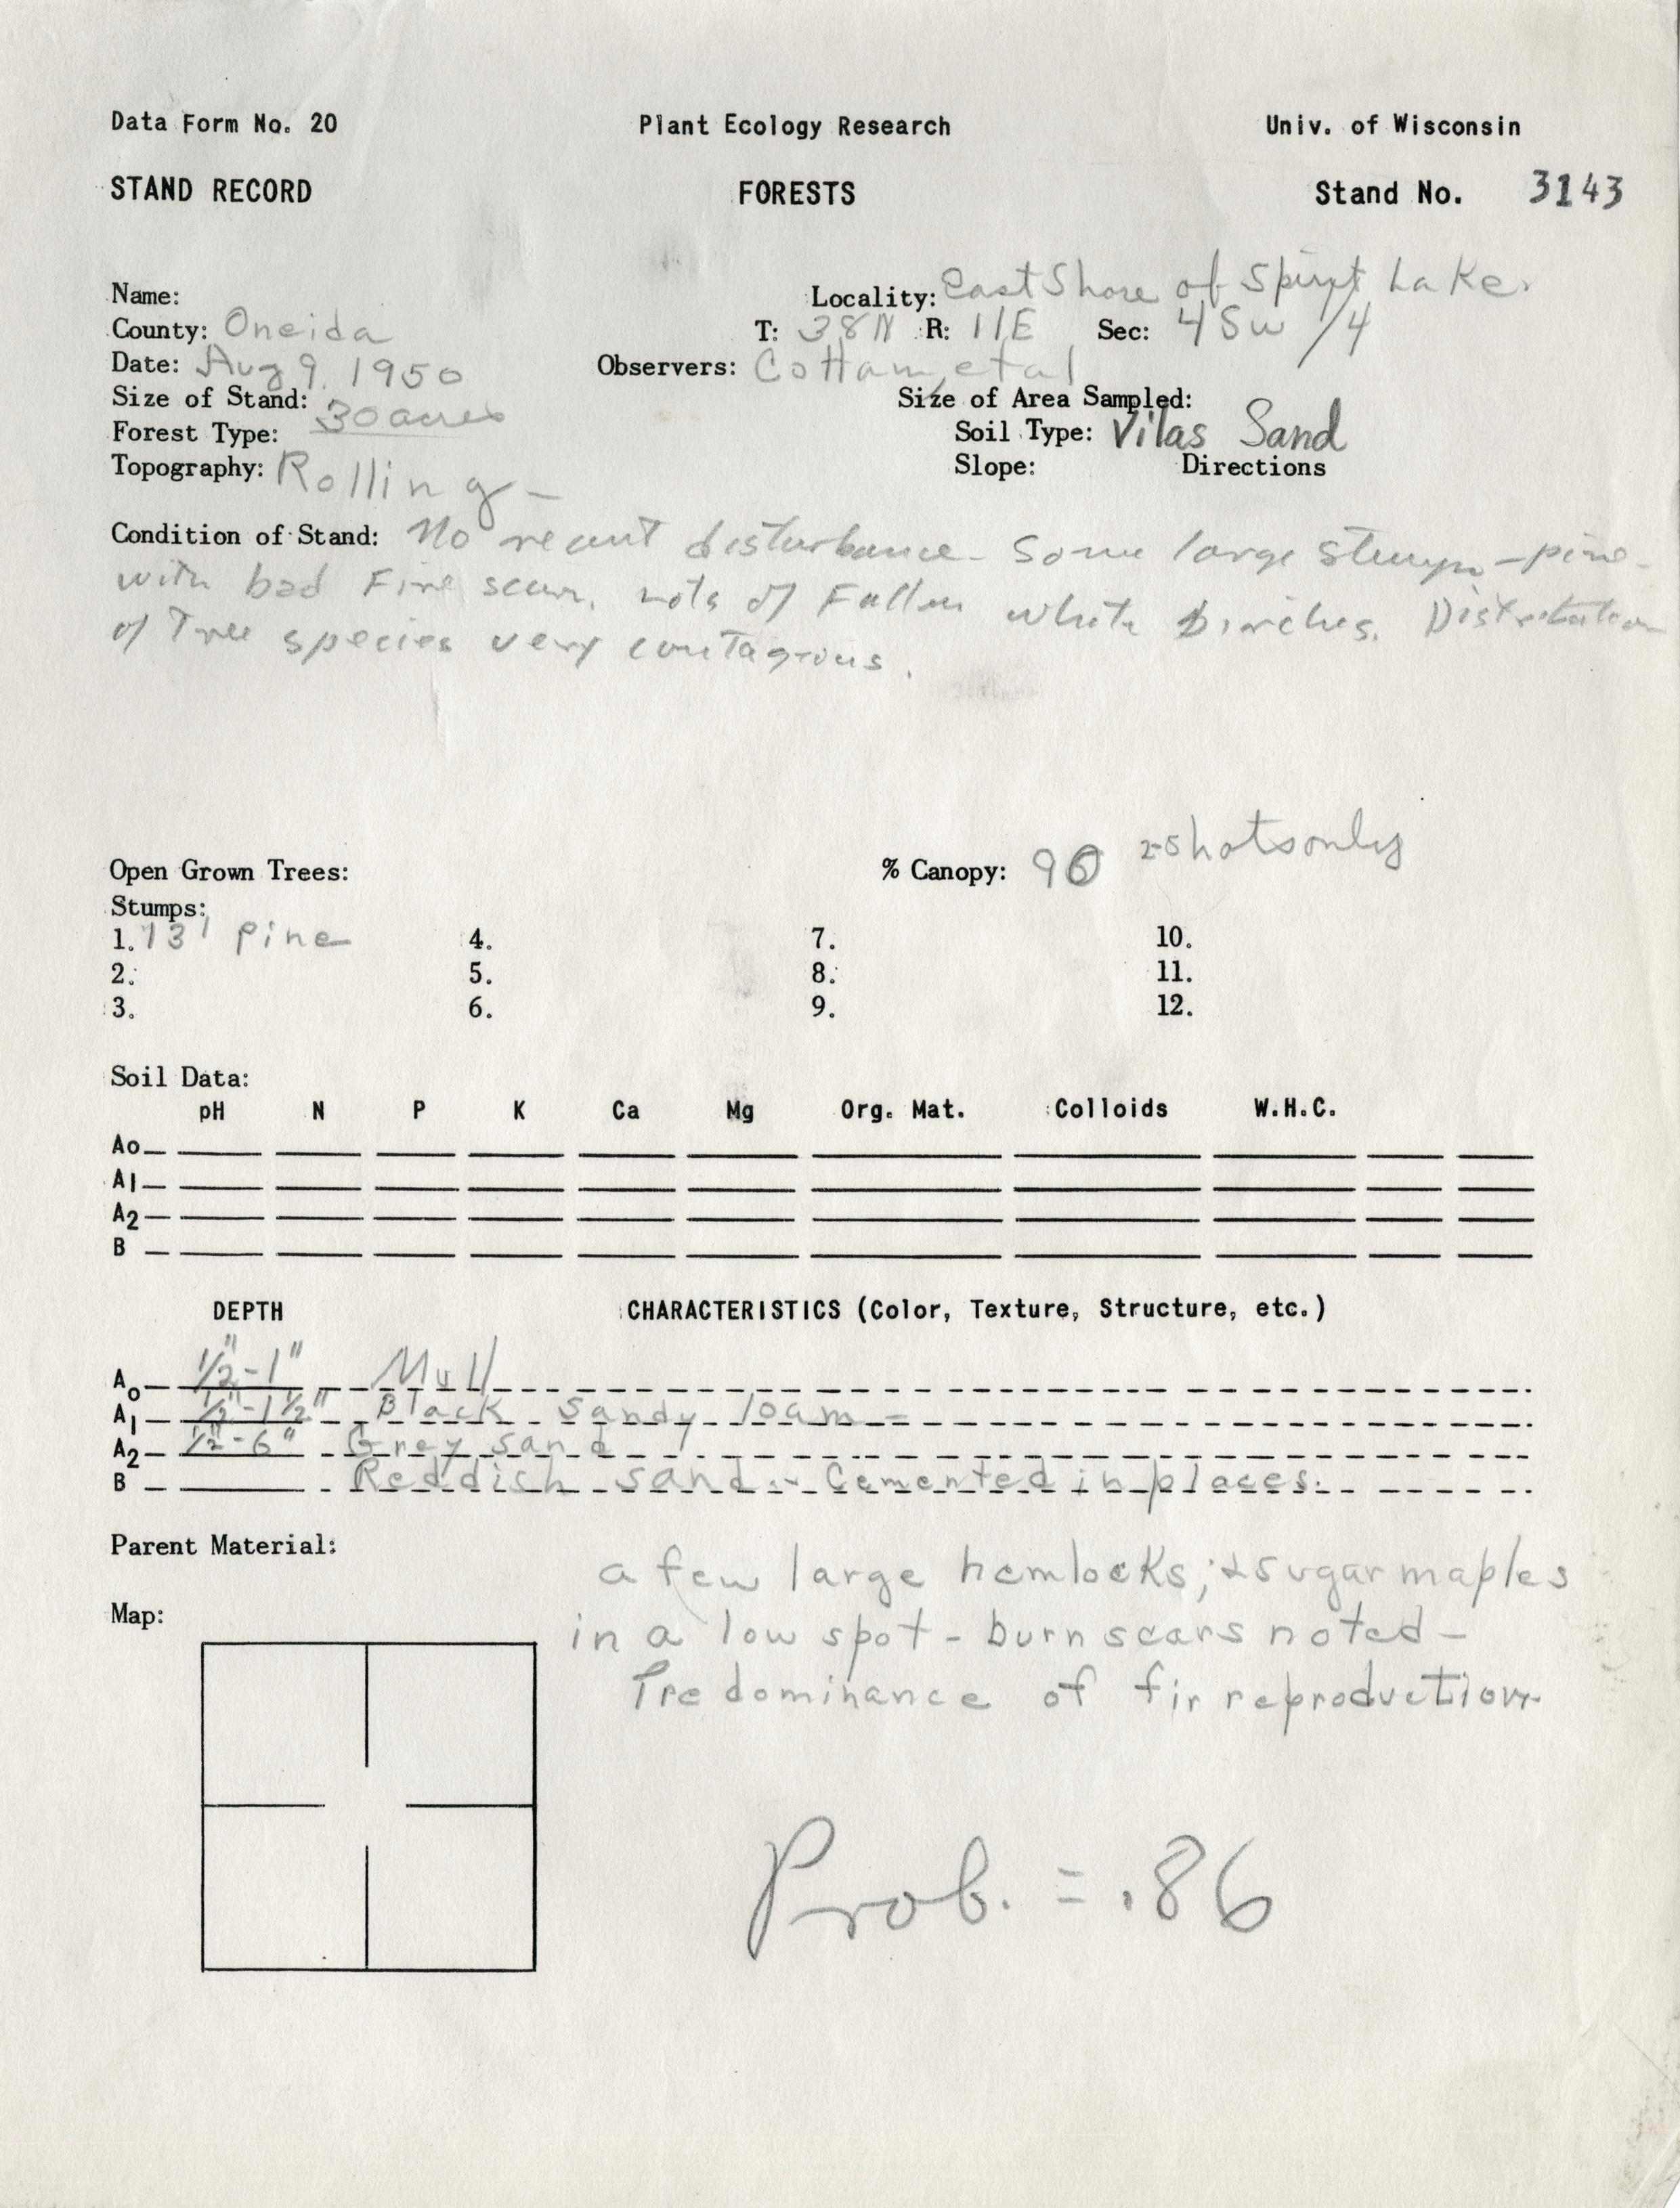 Data Form No. 20 Plant Ecology Research Univ. of Wisconsin
STAND RECORD FORESTS Stand No. 3143
Name: Locality: East Shore of Spirit Lake
County: Oneida T: 38N R: 11E Sec: 4 SW 1/4
Date: Aug 9, 1950 Observers: Cottam, et al
Size of Stand: 30 acres Size of Area Sampled:
Forest Type: Soil Type: Vilas Sand
Topography: Rolling - Slope: Directions
Condition of Stand: No recent disturbance - Some large stumps - pine -
with bad Fire scars. Lots of Fallen white birches. Distribution
of Tree species very contagious.
Open Grown Trees: % Canopy: 90 25 hots only
Stumps:
1. 13' pine 4. 7. 10.
2. 5. 8. 11.
3. 6. 9. 12.
Soil Data:
pH N P K Ca Mg Org. Mat. Colloids W.H.C.
Ao
A1
A2
B
DEPTH CHARACTERISTICS (Color, Texture, Structure, etc.)
Ao 1/2"-1" Mull
A1 1/2"-1 1/2" Black sandy loam -
A2 1/2-6" Grey sand
B Reddish sand -- Cemented in places.
Parent Material:
a few large hemlocks; & sugar maples
Map:
in a low spot - burn scars noted -
Predominance of fir reproduction
Prob. = .86